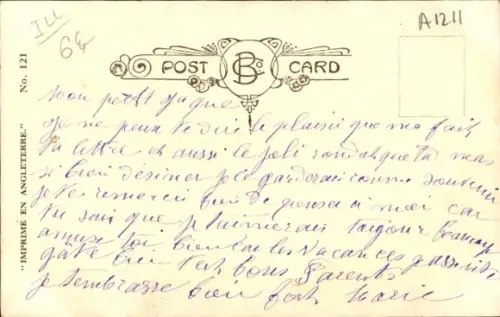 ILL
6€
A1211
POST CARD
"IMPRIMÉ EN ANGLETERRE." No. 121
Mon petit
Je ne peux te dire le plaisir que ma fait
ta lettre et aussi le joli que tu m'a
si bien désiner je le garderai comme souvenir
je te remerci bien de penser a moi car
tu sais que je t'aimerais toujour beaucoup
amuse toi bien car les vacances passe vite
gate bien test bons Parents
je t'embrasse bien fort Marie